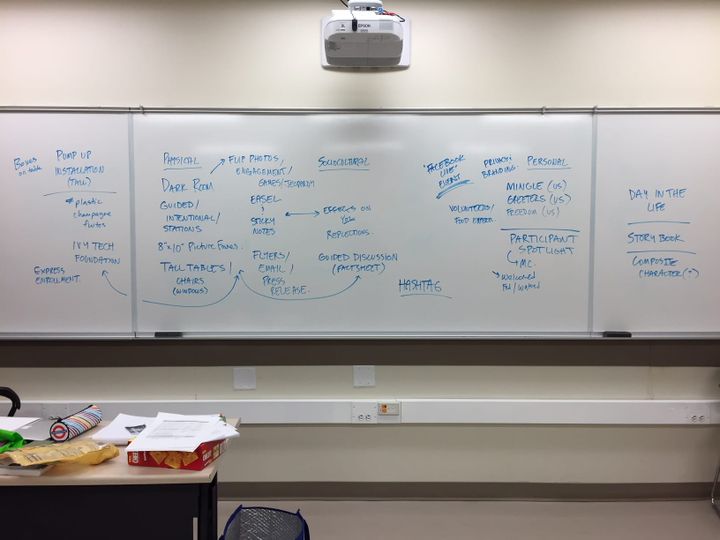 EPSON
Boxes
on table
PUMP UP
INSTALLATION
(TALL)
plastic
champagne
flutes
IVY TECH
FOUNDATION
EXPRESS
ENROLLMENT.
PHYSICAL
DARK ROOM
GUIDED/
INTENTIONAL/
STATIONS
8"x10" Picture Frames.
TALL TABLES/
CHAIRS
(WINDOWS)
FLIP PHOTOS/
ENGAGEMENT/
GAMES/JEOPARDY
EASEL
STICKY
NOTES
FLYERS/
EMAIL/
PRESS
RELEASE.
SOCIOCULTURAL
EFFECTS ON
YOU
REFLECTIONS.
GUIDED DISCUSSION
(FACTSHEET)
"FACEBOOK
LIVE"
EVENT
HASHTAG
PRIVACY
BRANDING.
VOLUNTEERS/
PERSONAL
MINGLE (US)
GREETERS (US)
FREEDOM (US)
PARTICIPANT
SPOTLIGHT
MC.
Welcomed
Fed/Watered
DAY IN THE
LIFE
STORY BOOK
COMPOSITE
CHARACTER(?)